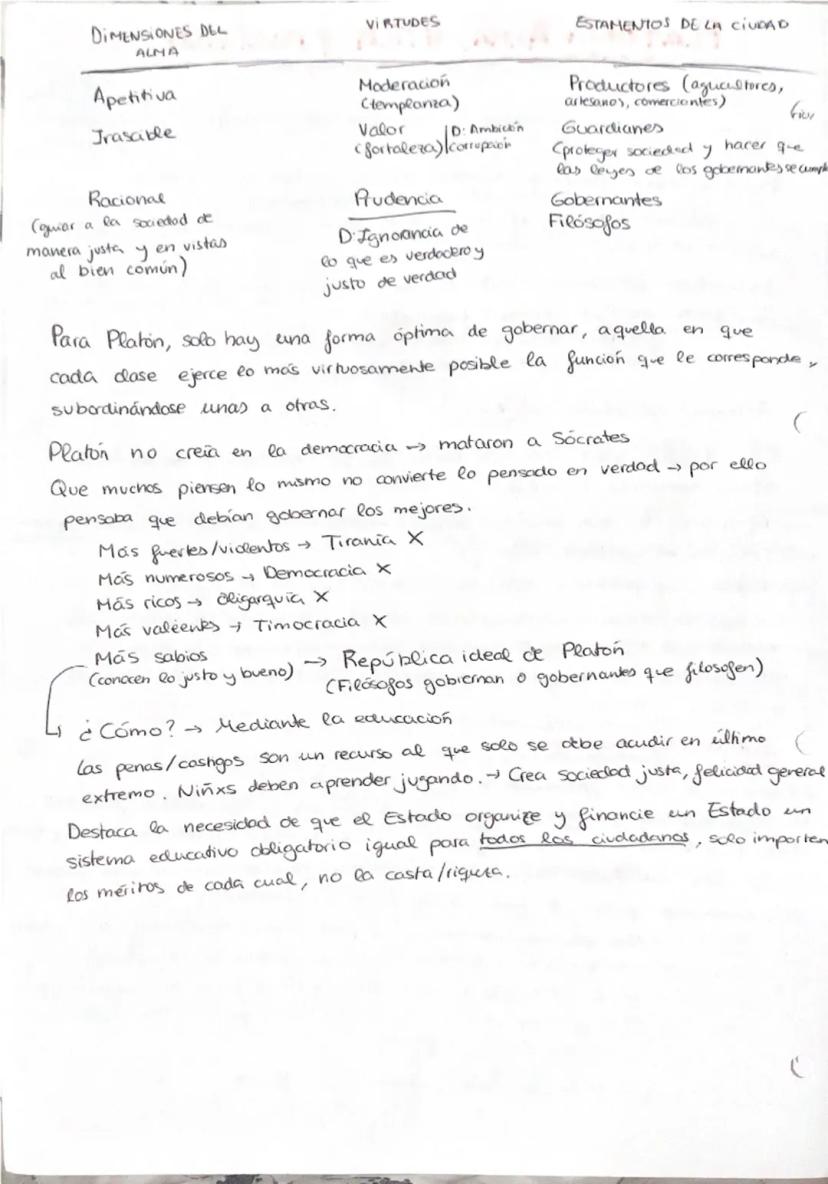 DIMENSIONES DEL ALMA VIRTUDES ESTAMENTOS DE LA CIUDAD
Apetitiva Moderación (templanza) Productores (agricultores, artesanos, comerciantes)
Irascible Valor (fortaleza) D: Ambición corrupción Guardianes
(proteger sociedad y hacer que
las leyes de los gobernantes se cumpla
Racional Prudencia Gobernantes
Filósofos
(guiar a la sociedad de
manera justa y en vistas
al bien común)
D: Ignorancia de
lo que es verdadero y
justo de verdad
Para Platón, solo hay una forma óptima de gobernar, aquella en que
cada clase ejerce lo más virtuosamente posible la función que le corresponde,
subordinándose unas a otras.
Platón no creía en la democracia → mataron a Sócrates
Que muchos piensen lo mismo no convierte lo pensado en verdad → por ello
pensaba que debían gobernar los mejores.
Más fuertes/violentos → Tiranía X
Más numerosos → Democracia X
Más ricos → Oligarquía X
Más valientes → Timocracia X
Más sabios → República ideal de Platón
(conocen lo justo y bueno) (Filósofos gobiernan o gobernantes que filosofen)
¿Cómo? → Mediante la educación
Las penas/castigos son un recurso al que solo se debe acudir en último
extremo. Niñxs deben aprender jugando. → Crea sociedad justa, felicidad general
Destaca la necesidad de que el Estado organize y financie un Estado un
sistema educativo obligatorio igual para todos los ciudadanos, solo importen
los méritos de cada cual, no la casta/riqueza.